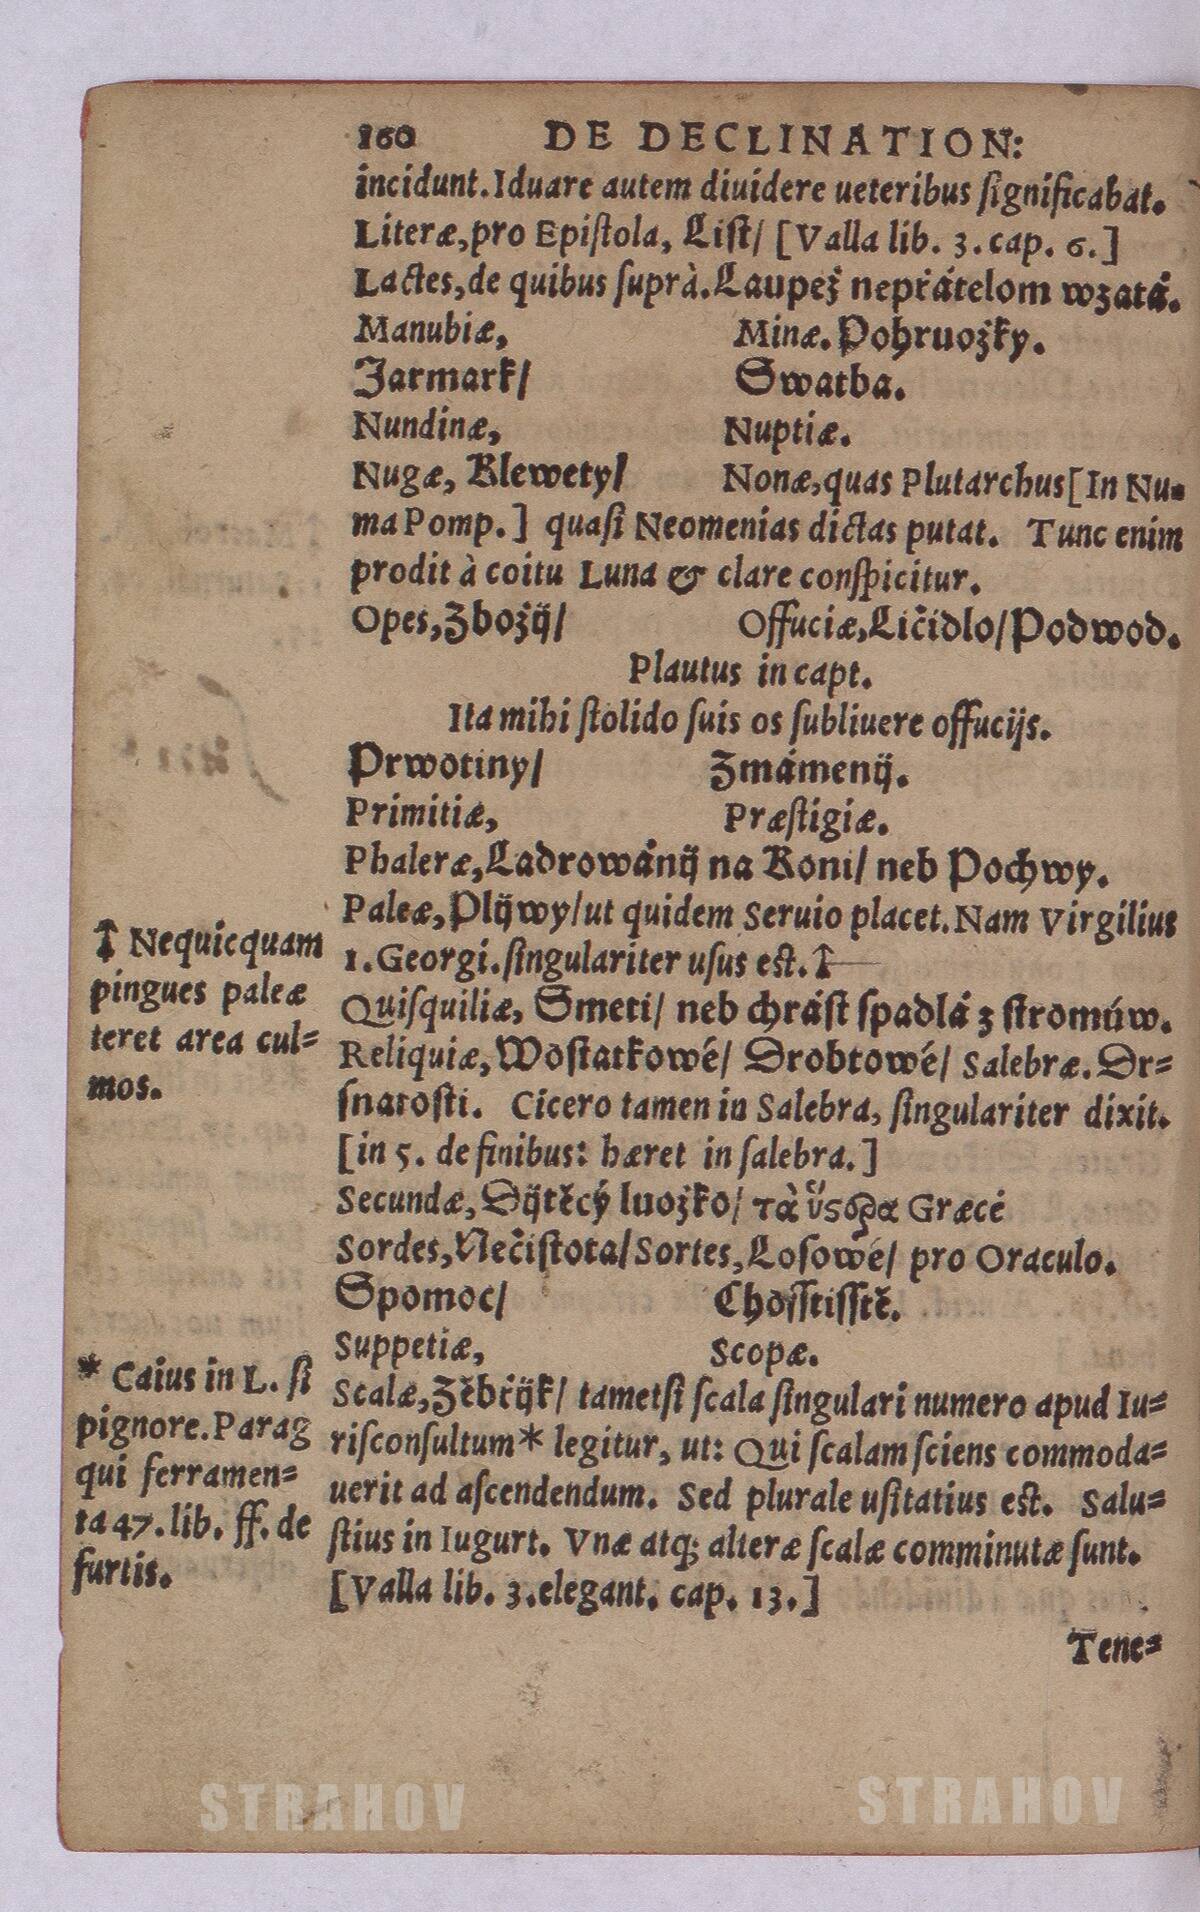 160 DE DECLINATION:
incidunt. Iduare autem diuidere ueteribus ſignificabat.
Literæ, pro Epiſtola, Liſt/ [Valla lib. 3. cap. 6.]
Lactes, de quibus ſuprà. Laupež nepřátelom wzatá.
Manubiæ, Minæ. Pohruožky.
Jarmark/ Swatba.
Nundinæ, Nuptiæ.
Nugæ, Klewety/ Nonæ, quas Plutarchus [In Nu-
ma Pomp.] quaſi Neomenias dictas putat. Tunc enim
prodit à coitu Luna & clare conſpicitur.
Opes, Zbožij/ Offuciæ, Ličidlo/ Podwod.
Plautus in capt.
Ita mihi ſtolido ſuis os ſubliuere offucijs.
Prwotiny/ Zmámenij.
Primitiæ, Præſtigiæ.
Phaleræ, Ladrowánij na Koni/ neb Pochwy.
Paleæ, Plijwy/ ut quidem Seruio placet. Nam Virgilius
1. Georgi. ſingulariter uſus est. †
Quiſquiliæ, Smeti/ neb chráſt ſpadlá z ſtromúw.
Reliquiæ, Woſtatkowé/ Drobtowé/ Salebræ. Dr=
ſnatoſti. Cicero tamen in Salebra, ſingulariter dixit.
[in 5. de finibus: hæret in ſalebra.]
Secundæ, Dijtěcý luožko/ τὰ ὕςορα Græcè
Sordes, Nečiſtota/ Sortes, Loſowé/ pro Oraculo.
Spomoc/ Choſſtiſſtě.
Suppetiæ, Scopæ.
Scalæ, Zěbřijk/ tametſi ſcala ſingulari numero apud Iu=
riſconſultum* legitur, ut: Qui ſcalam ſciens commoda=
uerit ad aſcendendum. Sed plurale uſitatius est. Salu=
ſtius in Iugurt. Vnæ atq; alteræ ſcalæ comminutæ ſunt.
[Valla lib. 3. elegant. cap. 13.]
Tene=
† Nequicquam
pingues paleæ
teret area cul=
mos.
* Caius in L. ſi
pignore. Parag
qui ferramen=
ta 47. lib. ff. de
furtis.
STRAHOV STRAHOV